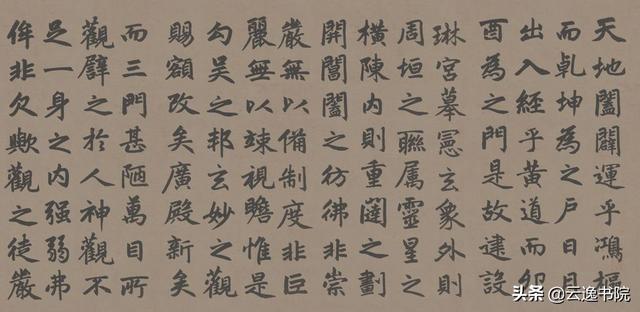 天地闔闢運乎鴻樞
而乹坤為之戶日月
出入經乎黃道而卯
酉為之門是故建設
琳宮摹憲玄象外則
周垣之聮属靈星之
橫陳內則重闥之劃
開閶闔之彷彿非崇
嚴無以備制度非巨
麗無以竦視瞻惟是
勾吳之邦玄妙之觀
賜額改矣廣殿新矣
而三門甚陋萬目所
觀譬之於人神觀不
足一身之內强弱弗
侔非欠歟觀之徒嚴
头条 @云逸书院